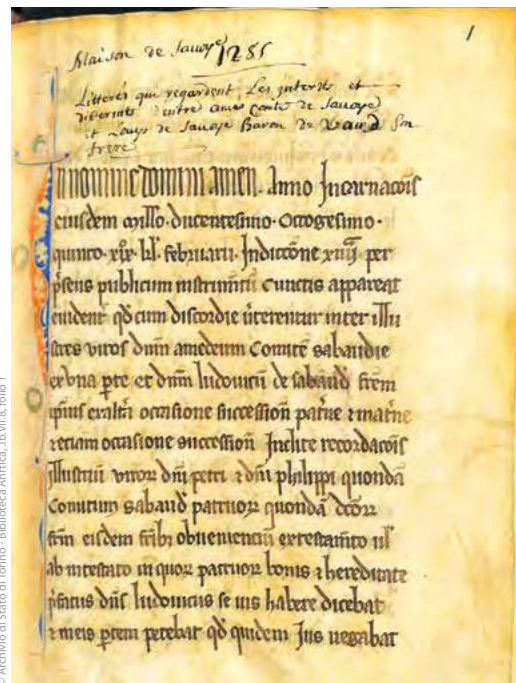 1
Maison de Savoye 1285
Litteres qui regardent Les interests et
differents d'entre ame conte de Savoye
et Louys de Savoye Baron de Vaud Son
frere
In nomine domini amen. Anno Incarnacõis
eiusdem millo. ducentesimo. Octogesimo.
quinto. xiẋ. kł. februarii. Indictõne xiiij per
p̃sens publicum instrumẽtũ cunctis appareat
euident̃ qđ cum discordie ũterentur inter illu
stres viros dñm amedeum Comitẽ sabaudie
ex vna p̃te et dñm ludouicũ de sabaud̃ frẽm
ip̃ius ex alt̃a occasione succession̄ pat̃ne ⁊ mat̃ne
⁊ etiam occasione succession̄ Inclite recordacõis
Illustriũ viroꝝ dñi petri ⁊ dñi philippi quondã
Comitum sabaud̃ patruoꝝ quondã dc̃oꝝ
fr̃m eisdem fr̃ibꝫ obueniencĩu ex testam̃to ul̃
ab intestato in quoꝝ patruoꝝ bonis ⁊ hereditate
p̃fatus dñs ludouicus se ius habere dicebat
⁊ in eis p̃tem petebat qđ quidem Jus negabat
© Archivio di Stato di Torino - Biblioteca Antica, Jb.VII.8, folio 1